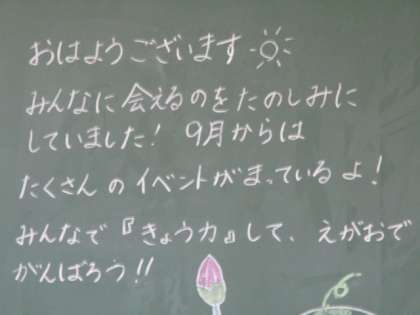 おはようございます
みんなに会えるのをたのしみに
していました! 9月からは
たくさんのイベントがまっているよ!
みんなで『きょう力』して、えがおで
がんばろう!!